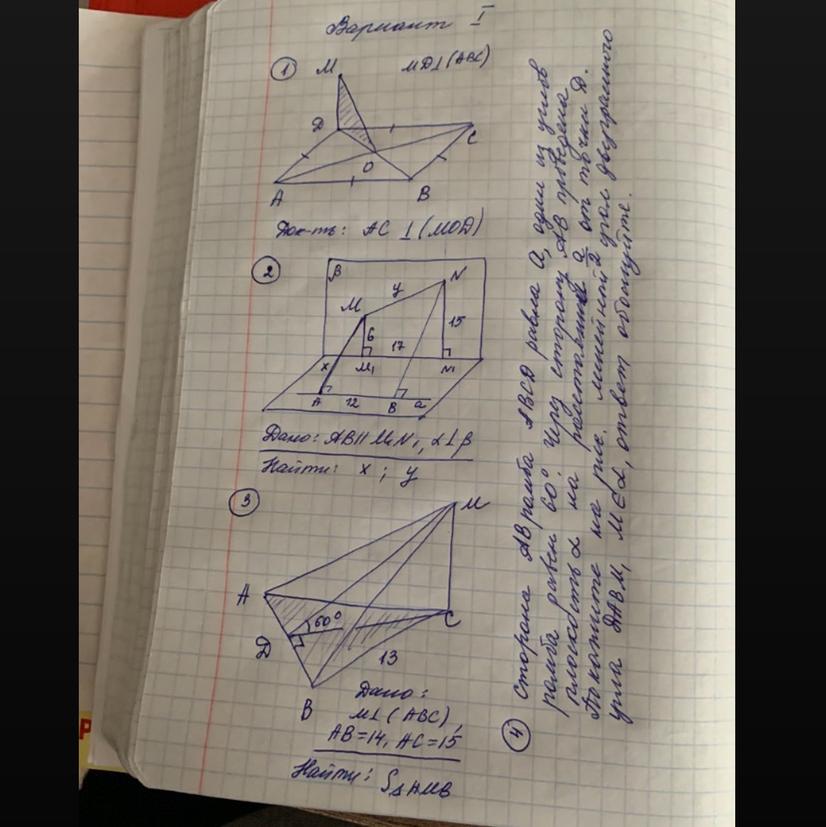 Вариант I
1
MD⊥(ABC)
M
D
C
O
A
B
Док-ть: AC ⊥ (MOD)
2
β
N
y
M
6
15
17
x
M₁
N₁
A
12
B
a
Дано: AB || M₁N₁, α⊥β
Найти: x ; y
3
M
A
60°
C
D
13
B
Дано:
M⊥(ABC),
AB=14, AC=15
Найти: S△AMB
4
сторона AB ромба ABCD равна a, один из углов
ромба равен 60°. Через сторону AB проведена
плоскость α на расстоянии a/2 от точки D.
Покажите на рис. линейной угол двугранного
угла DABM, M∈α, ответ обоснуйте.